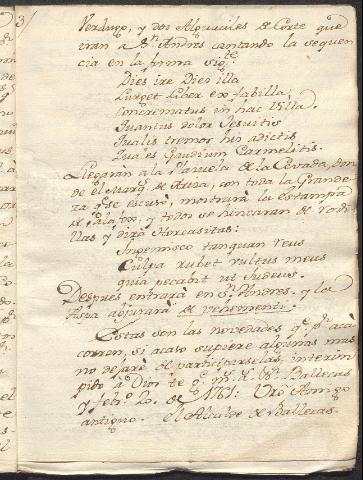 3
Verdugo, y dos Alguaciles de Corte que
iran a Sn. Andres cantando la sequen
cia en la forma sigte.
Dies ire Dies illa
Surget Liber ex fabilla,
concrematus in hac Villa.
Quantus dolor Jesuitis
Qualis tremor his adictis
Gaudium Carmelitis.
Llegaràn a la Plazuela de la Cevada, don
de el Marqs. de con toda la Grande
za qe. se escusò, mostrarà la estampa
y todos se hincaran de rodi
llas y dirà Horcasitas:
Ingemisco tanquan reus
Culpa rubet vultus meus
quia pecabit ut Judeus.
Despues entrarà en Sn. Andres, y la
adjurarà de vehementi.
Estas son las novedades qe. pr. acà
corren, si acaso supiere algunas mas
no dejarè de participarselas, interim
pido à Dios te ge. ms. as. Ballecas
y febo. 20. de 1761. Vro. Amigo
antiguo. el Alcalde de Ballecas.